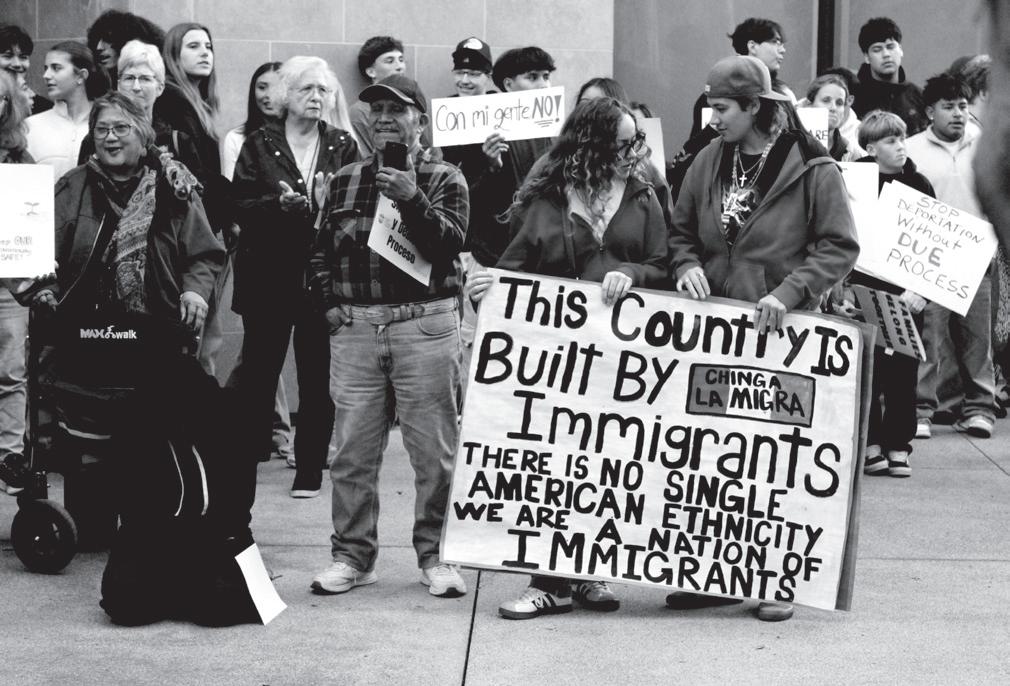 Con mi gente NO!
y De
Proceso
OUR
SAFE!
MAX walk
ARE
STOP
DEPORTATION
Without
DUE
PROCESS
This Country Is
Built By
CHINGA
LA MIGRA
Immigrants
THERE IS NO SINGLE
AMERICAN ETHNICITY
WE ARE A NATION OF
IMMIGRANTS